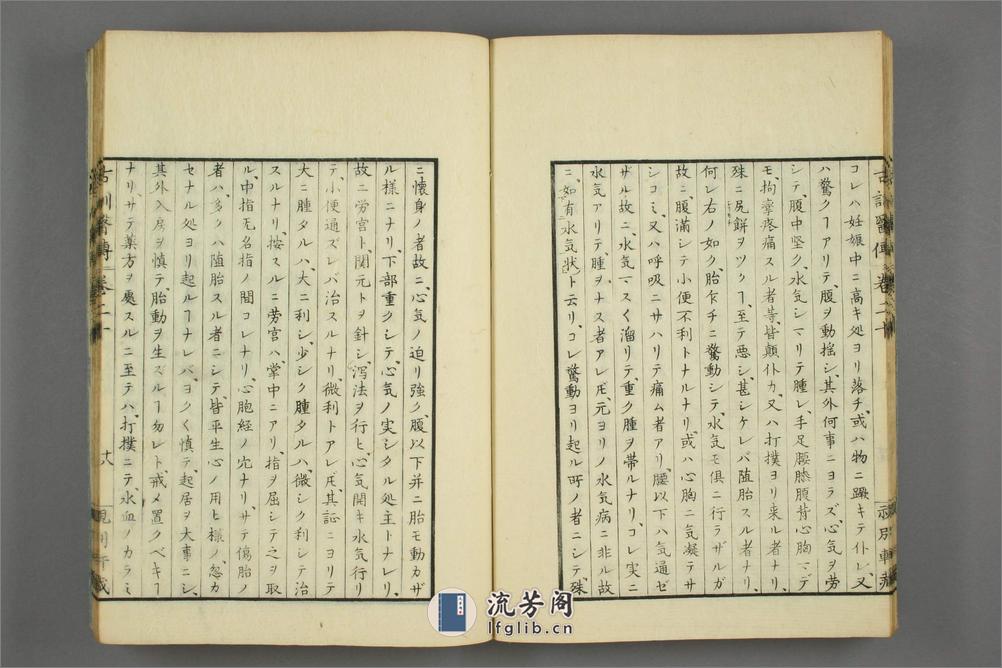 コレハ妊娠中ニ高キ処ヨリ落チ、或ハ物ニ躓キテ仆レ、又
ハ驚クヿアリテ、腹ヲ動揺シ、其外何事ニヨラズ、心気ヲ労
シテ、腹中堅ク、水気シマリテ腫レ、手足腰膝腹背心胸マデ
モ、拘攣疼痛スル者等、皆顛仆カ、又ハ打撲ヨリ来ル者ナリ、
殊ニ尻餅ヲツクヿ、至テ悪シ、甚シケレバ堕胎スル者ナリ、
何レ右ノ如ク、胎乍チニ驚動シテ、水気モ倶ニ行ラザルガ
故ニ、腹満シテ小便不利トナルナリ、或ハ心胸ニ気凝テサ
シコミ、又ハ呼吸ニサハリテ痛ム者アリ、腰以下ハ気通ゼ
ザル故ニ、水気マスく溜リテ、重ク腫ヲ帯ルナリ、コレ実ニ
水気アリテ、腫ヲナス者アレ𪜈、元ヨリノ水気病ニ非ル故
ニ、如有水気状ト云リ、コレ驚動ヨリ起ル所ノ者ニシテ、殊
ニ懐身ノ者故ニ、心気ノ迫リ強ク、腹以下并ニ胎モ動カザ
ル様ニナリ、下部重クシテ、心気ノ実シタル処主トナレリ、
故ニ労宮ト、関元トヲ針シ、瀉法ヲ行ヒ、心気開キ水気行リ
テ、小便通ズレバ治スルナリ、微利トアレ𪜈、其証ニヨリテ
大ニ腫タルハ、大ニ利シ、少シク腫タルハ、微シク利シテ治
スルナリ、按スルニ労宮ハ、掌中ニアリ、指ヲ屈シテ之ヲ取
ル、中指无名指ノ間コレナリ、心胞経ノ穴ナリ、サテ傷胎ノ
者ハ、多クハ堕胎スル者ニシテ、皆平生心ノ用ヒ様ノ、忽カ
セナル処ヨリ起ルヿナレバ、ヨクく慎テ、起居ヲ大事ニシ、
其外入房ヲ慎テ、胎動ヲ生ズルヿ勿レト、戒メ置クベキヿ
ナリ、サテ薬方ヲ處スルニ至テハ、打撲ニテ、水血ノカラミ
古訓医傳
巻二十
流芳阁
lfglib.cn